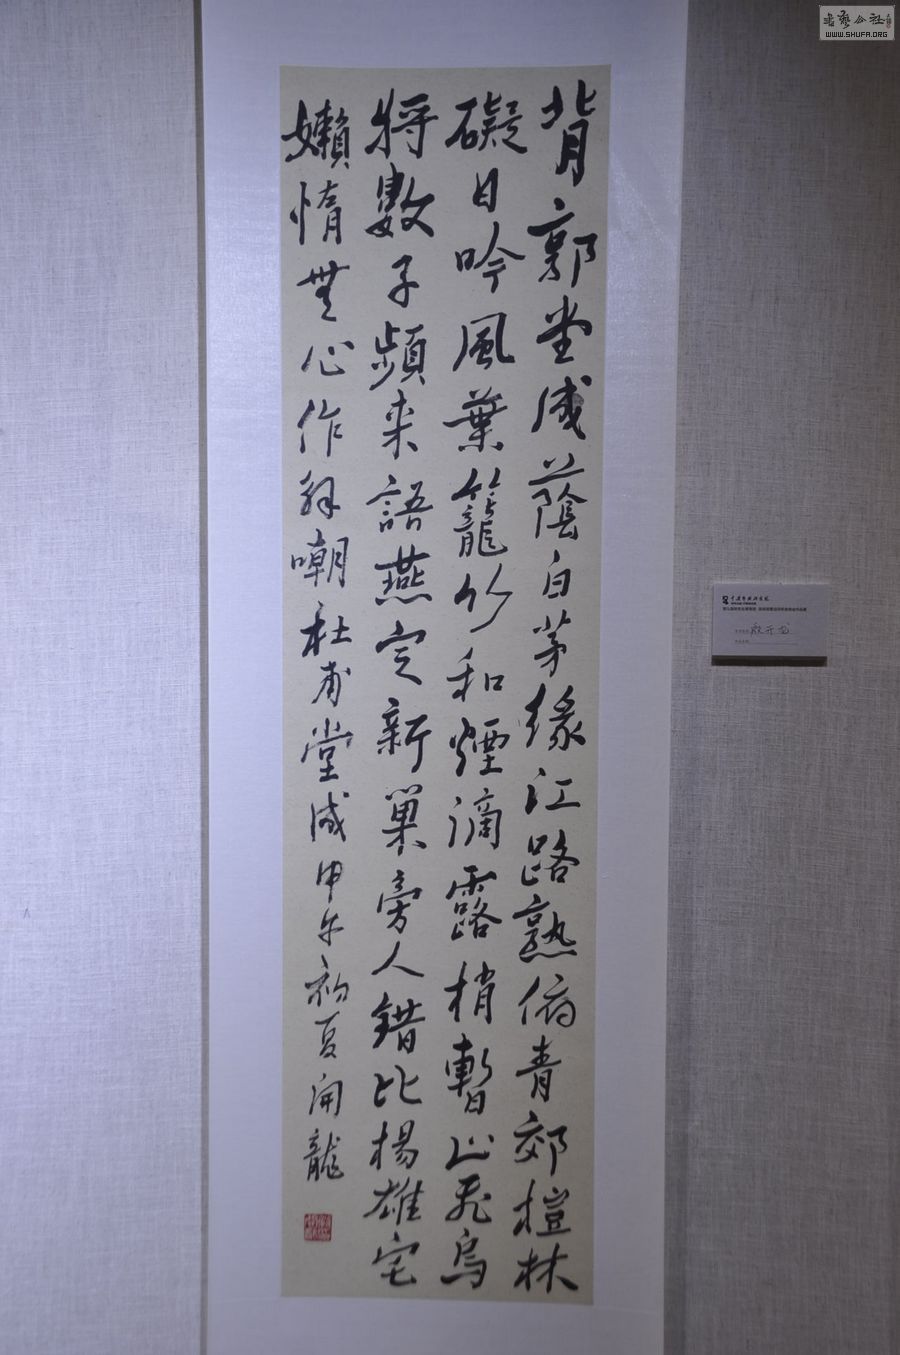 背郭堂成蔭白茅緣江路熟俯青郊榿林
礙日吟風葉籠竹和煙滴露梢暫止飛烏
將數子頻来語燕定新巢旁人錯比楊雄宅
嬾惰無心作解嘲杜甫堂成甲午初夏開龍
WWW.SHUFA.ORG